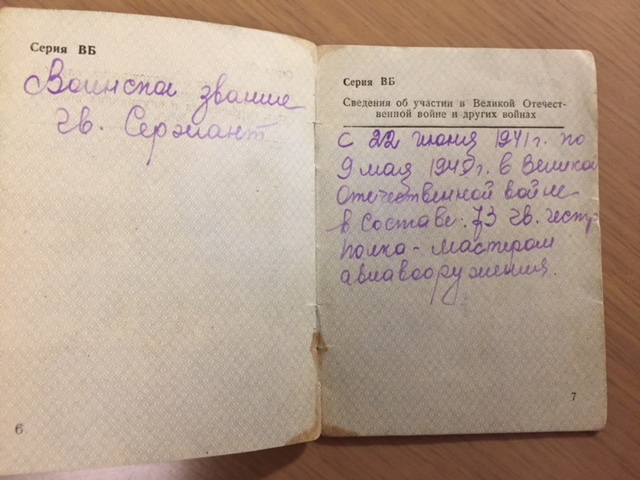 Серия ВБ
Воинское звание
гв. Сержант
6
Серия ВБ
Сведения об участии в Великой Отечест-
венной войне и других войнах
С 22 июня 1941г. по
9 мая 1945г. в Великой
Отечественной войне
в составе 73 гв. истр.
полка - мастером
авиавооружения.
7